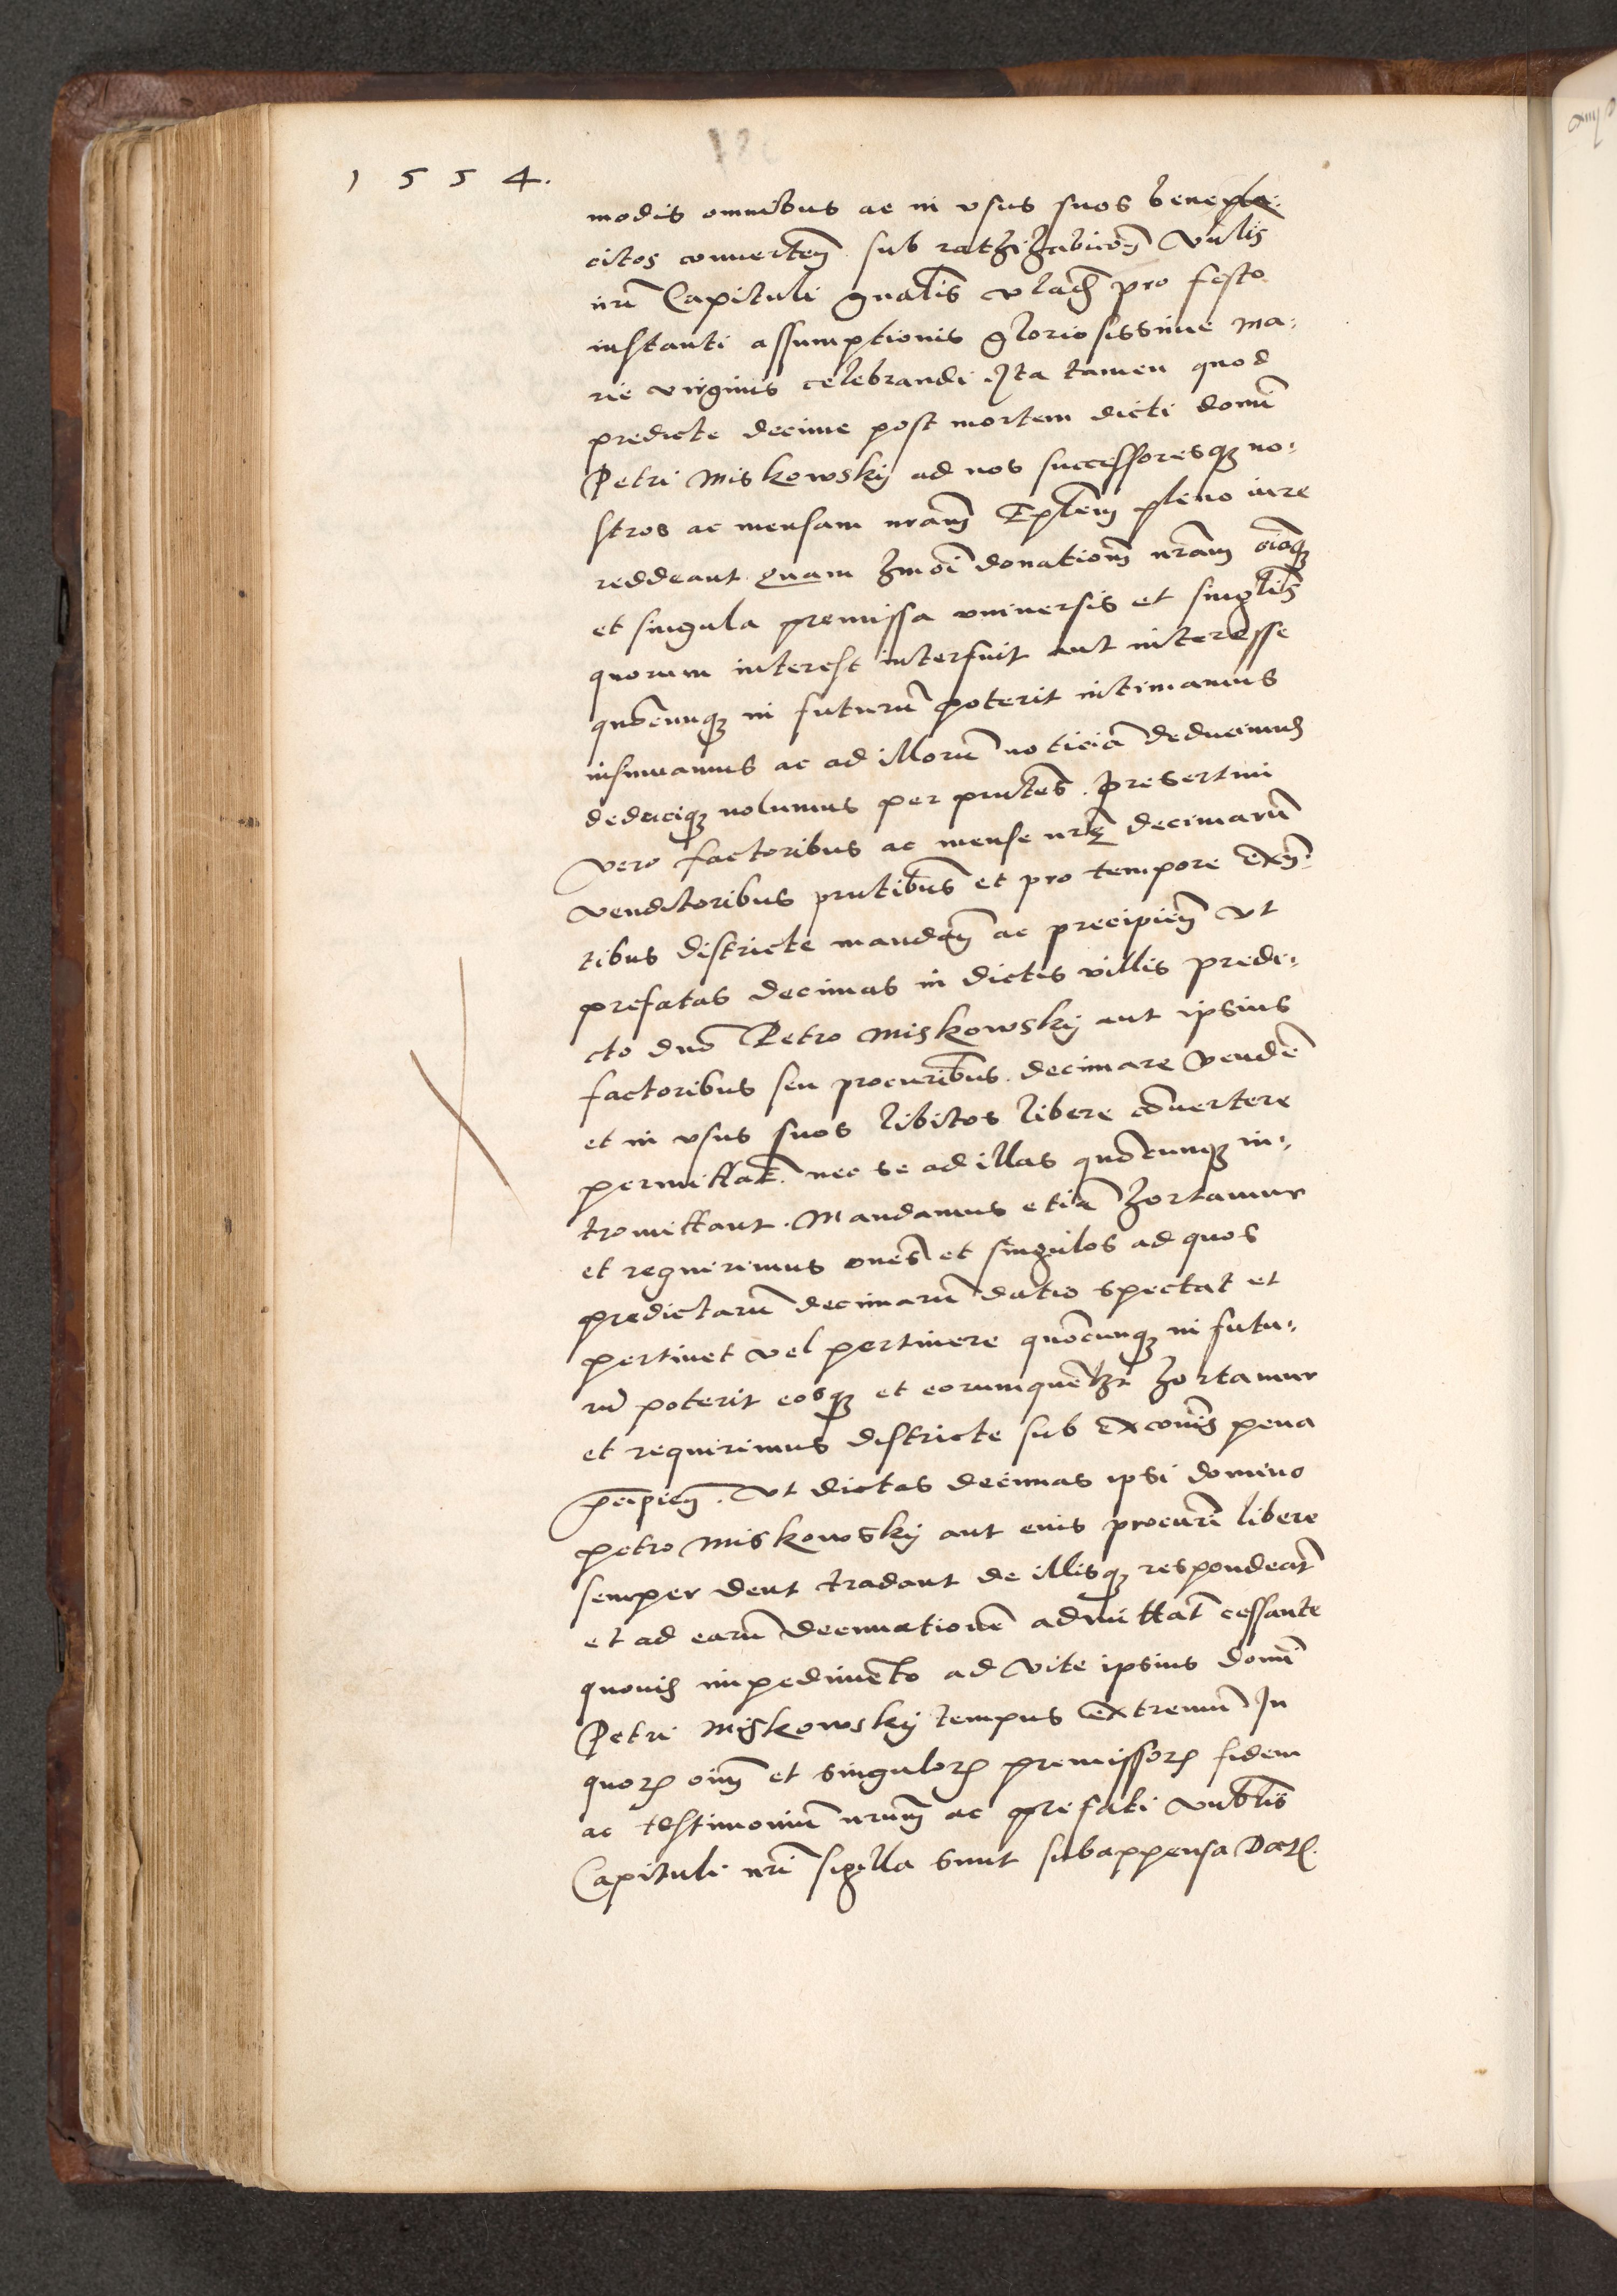 1 5 5 4.
modis omnibus ac in vsus suos benepla-
citos conuerten̄ sub ratihabitio͞e Vn̄lis
nr̄i Capituli gn̄alis vlach pro festo
instanti assumptionis gloriosissime Ma-
rie virginis celebrandi . Ita tamen quod
predicte decime post mortem dicti domi͞
Petri Miskowskij ad nos successoresq; no-
stros ac mensam nram̄ Ep̄lem̄ pleno iure
reddeant quam hm͞oi donatione͞ nram̄ o͞iaq;
et singula premissa vniuersis et singlis̄
quorum interest interfuit aut interesse
quo͞cunq; in futuru͞ poterit intimamus
insinuamus ac ad illoru͞ noticia͞ deducimus
deduciq; volumus per pn̄tes . Presertim
vero factoribus ac mense nr̄e decimaru͞
venditoribus pn̄tibus et pro tempore exn̄-
tibus districte mandan̄ ac precipien̄ vt
prefatas decimas in dictis villis predi-
cto dn͞o Petro Miskowskij aut ipsius
factoribus seu procurībus . decimare vende͞
et in vsus suos libitos libere co͞uertere
permittat̄ . nec se ad illas quo͞cunq; in-
tromittant . Mandamus etia͞ hortamur
et requirimus om̄es et singulos ad quos
predictaru͞ decimaru͞ datio spectat et
pertinet vel pertinere quo͞cunq; in futu-
ru͞ poterit eosq; et eorumquēlzt hortamur
et requirimus districte sub excom̄is pena
p͞cipien̄ . Vt dictas decimas ipsi domino
petro Miskowskij aut eius procurī libere
semper dent tradant de illisq; respondeat̄
et ad earu͞ decimatione͞ admittat̄ cessante
quouis impedimēto ad vite ipsius domi͞
Petri Miskowskij tempus extremu͞ In
quorꝝ oim̄ et singulorꝝ premissorꝝ fidem
ac testimoniu͞ nrum̄ ac prefati Vn̄blis
Capituli nr̄i sigilla sunt subappensa Datꝝ